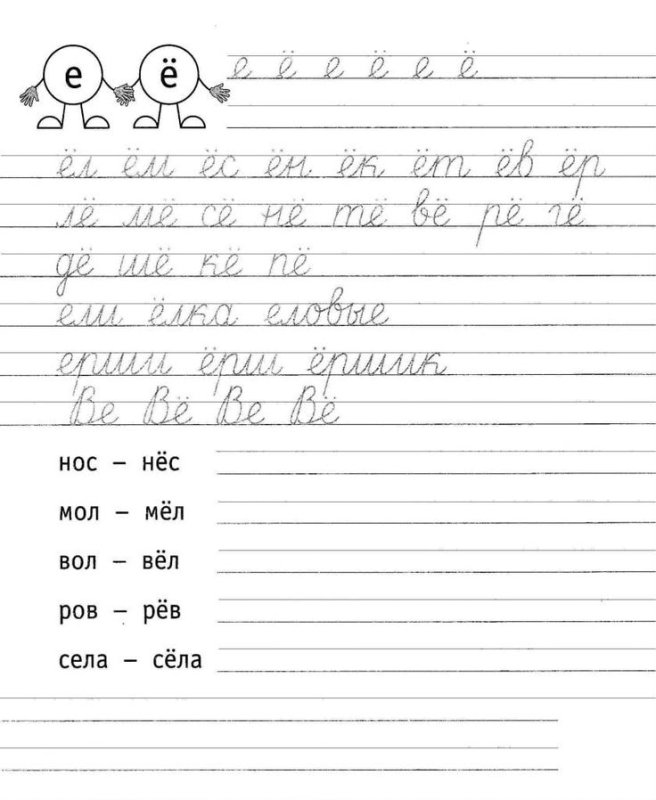 е ё е ё е ё е ё
ёл ём ёс ён ёк ёт ёв ёр
лё мё сё нё тё вё рё гё
дё шё кё пё
ели ёлка еловые
ерши ёрш ёршик
Ве Вё Ве Вё
нос – нёс
мол – мёл
вол – вёл
ров – рёв
села – сёла